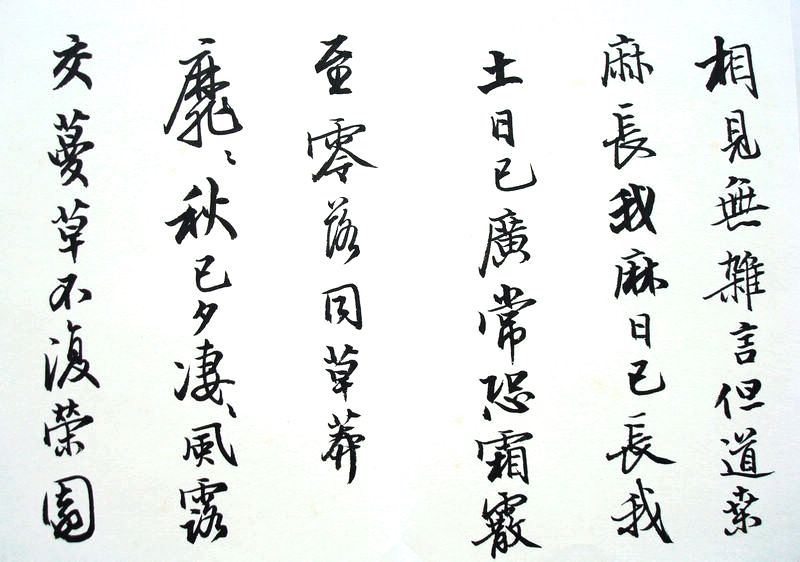 相見無雜言但道桒
麻長我麻日已長我
土日已廣常恐霜霰
至零落同草莽
靡〻秋已夕凄〻風露
交蔓草不復榮園